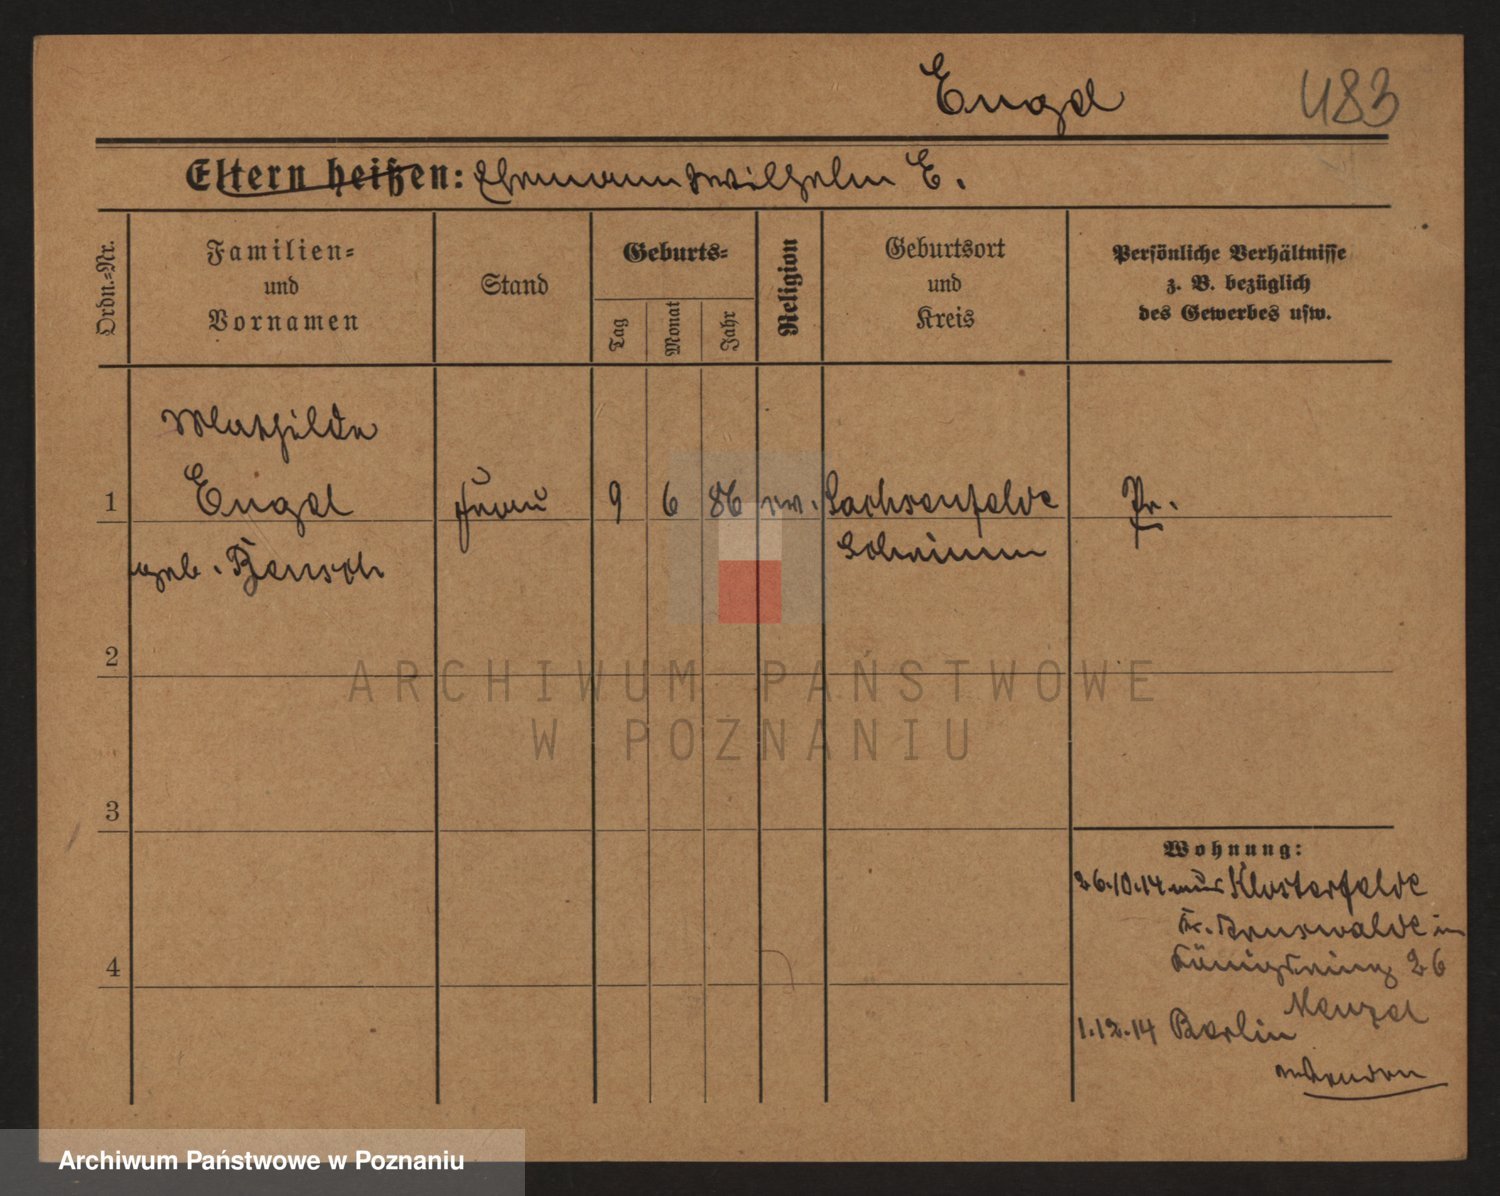 Engel 483
Eltern heißen: Ehemann Wilhelm E.
Ordn.-Nr.
Familien-
und
Vornamen
Stand
Geburts-
Tag
Monat
Jahr
Religion
Geburtsort
und
Kreis
Persönliche Verhältnisse
z. B. bezüglich
des Gewerbes usw.
Mathilde
1 Engel Frau 9 6 86 ev. Sachsenfelde Pr.
geb. Bensch Schrimm
2
ARCHIWUM PAŃSTWOWE
W POZNANIU
3
Wohnung:
26.10.14 aus Klosterfelde
Kr. Arnswalde in
4 Königsring 26
Menzel
1.12.14 Berlin
Archiwum Państwowe w Poznaniu